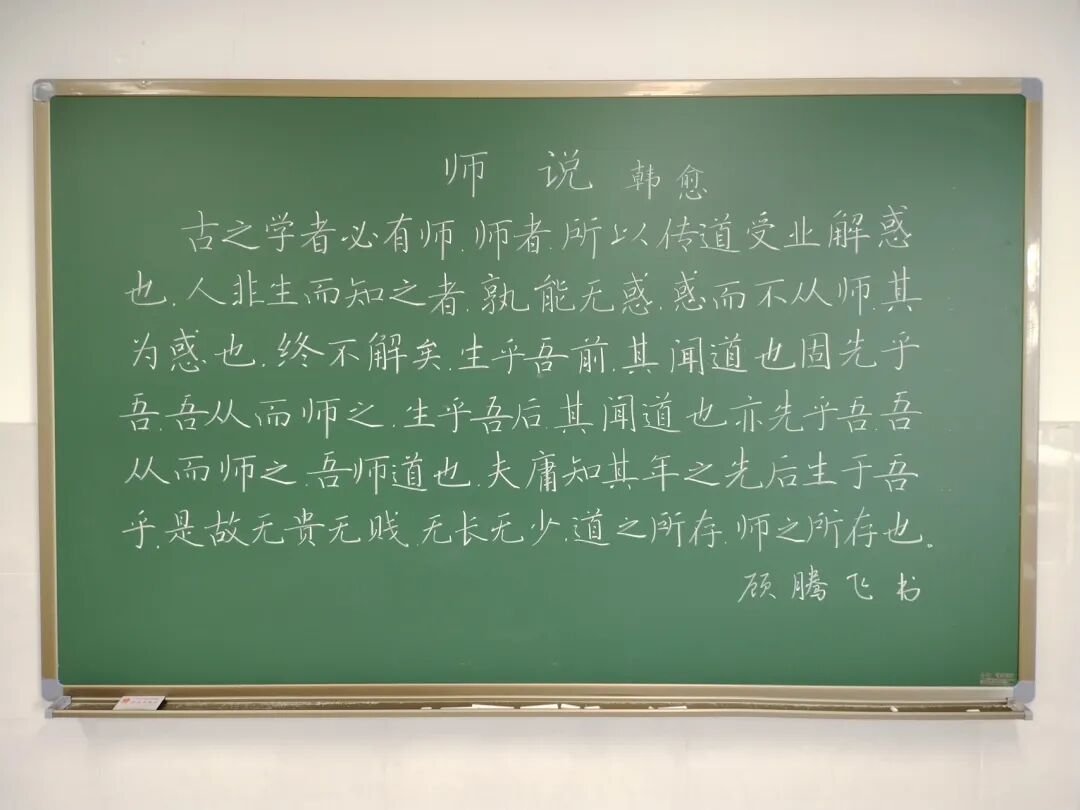 师 说 韩愈
古之学者必有师.师者.所以传道受业解惑
也.人非生而知之者.孰能无惑.惑而不从师.其
为惑也.终不解矣.生乎吾前.其闻道也固先乎
吾.吾从而师之.生乎吾后其闻道也亦先乎吾.吾
从而师之.吾师道也.夫庸知其年之先后生于吾
乎.是故无贵无贱.无长无少.道之所存.师之所存也。
顾腾飞书